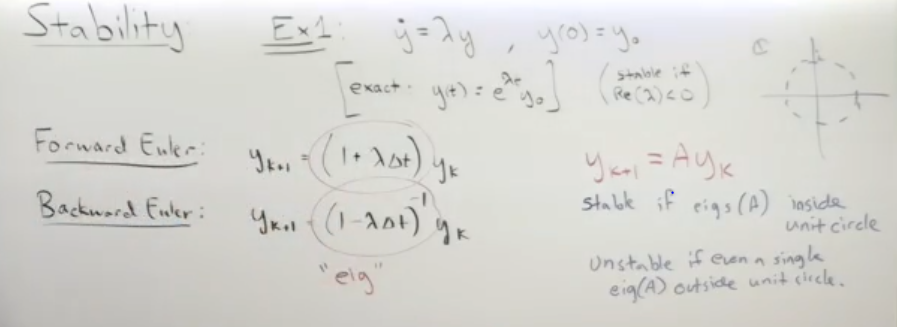 Stability Ex1: ẏ = λy , y(0) = y₀
[exact: y(t) = e^λt y₀] (stable if
Re(λ)<0)
ℂ
Forward Euler: yₖ₊₁ = (1 + λΔt) yₖ
yₖ₊₁ = A yₖ
Backward Euler: yₖ₊₁ = (1 - λΔt)⁻¹ yₖ
stable if eigs(A) inside
unit circle
"eig"
Unstable if even a single
eig(A) outside unit circle.